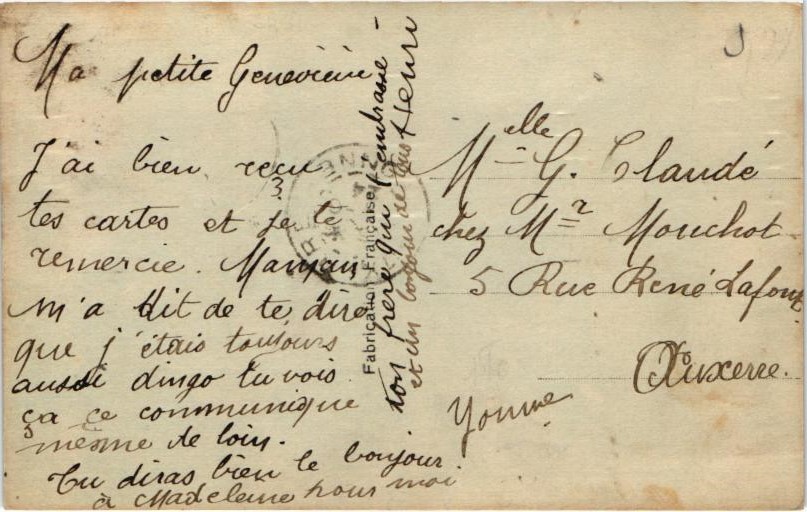 Ma petite Geneviève
J'ai bien reçu
tes cartes et je te
remercie. Maman
m'a dit de te dire
que j'étais toujours
aussi dingo tu vois
ça ce communique
même de loin.
Tu diras bien le bonjour
à Madeleine pour moi
ton frère qui t'embrasse
et un bonjour de tous Henri
Fabrication Française
Melle G. Claudé
chez Mr Mouchot
5 Rue René Lafont
Auxerre.
Yonne